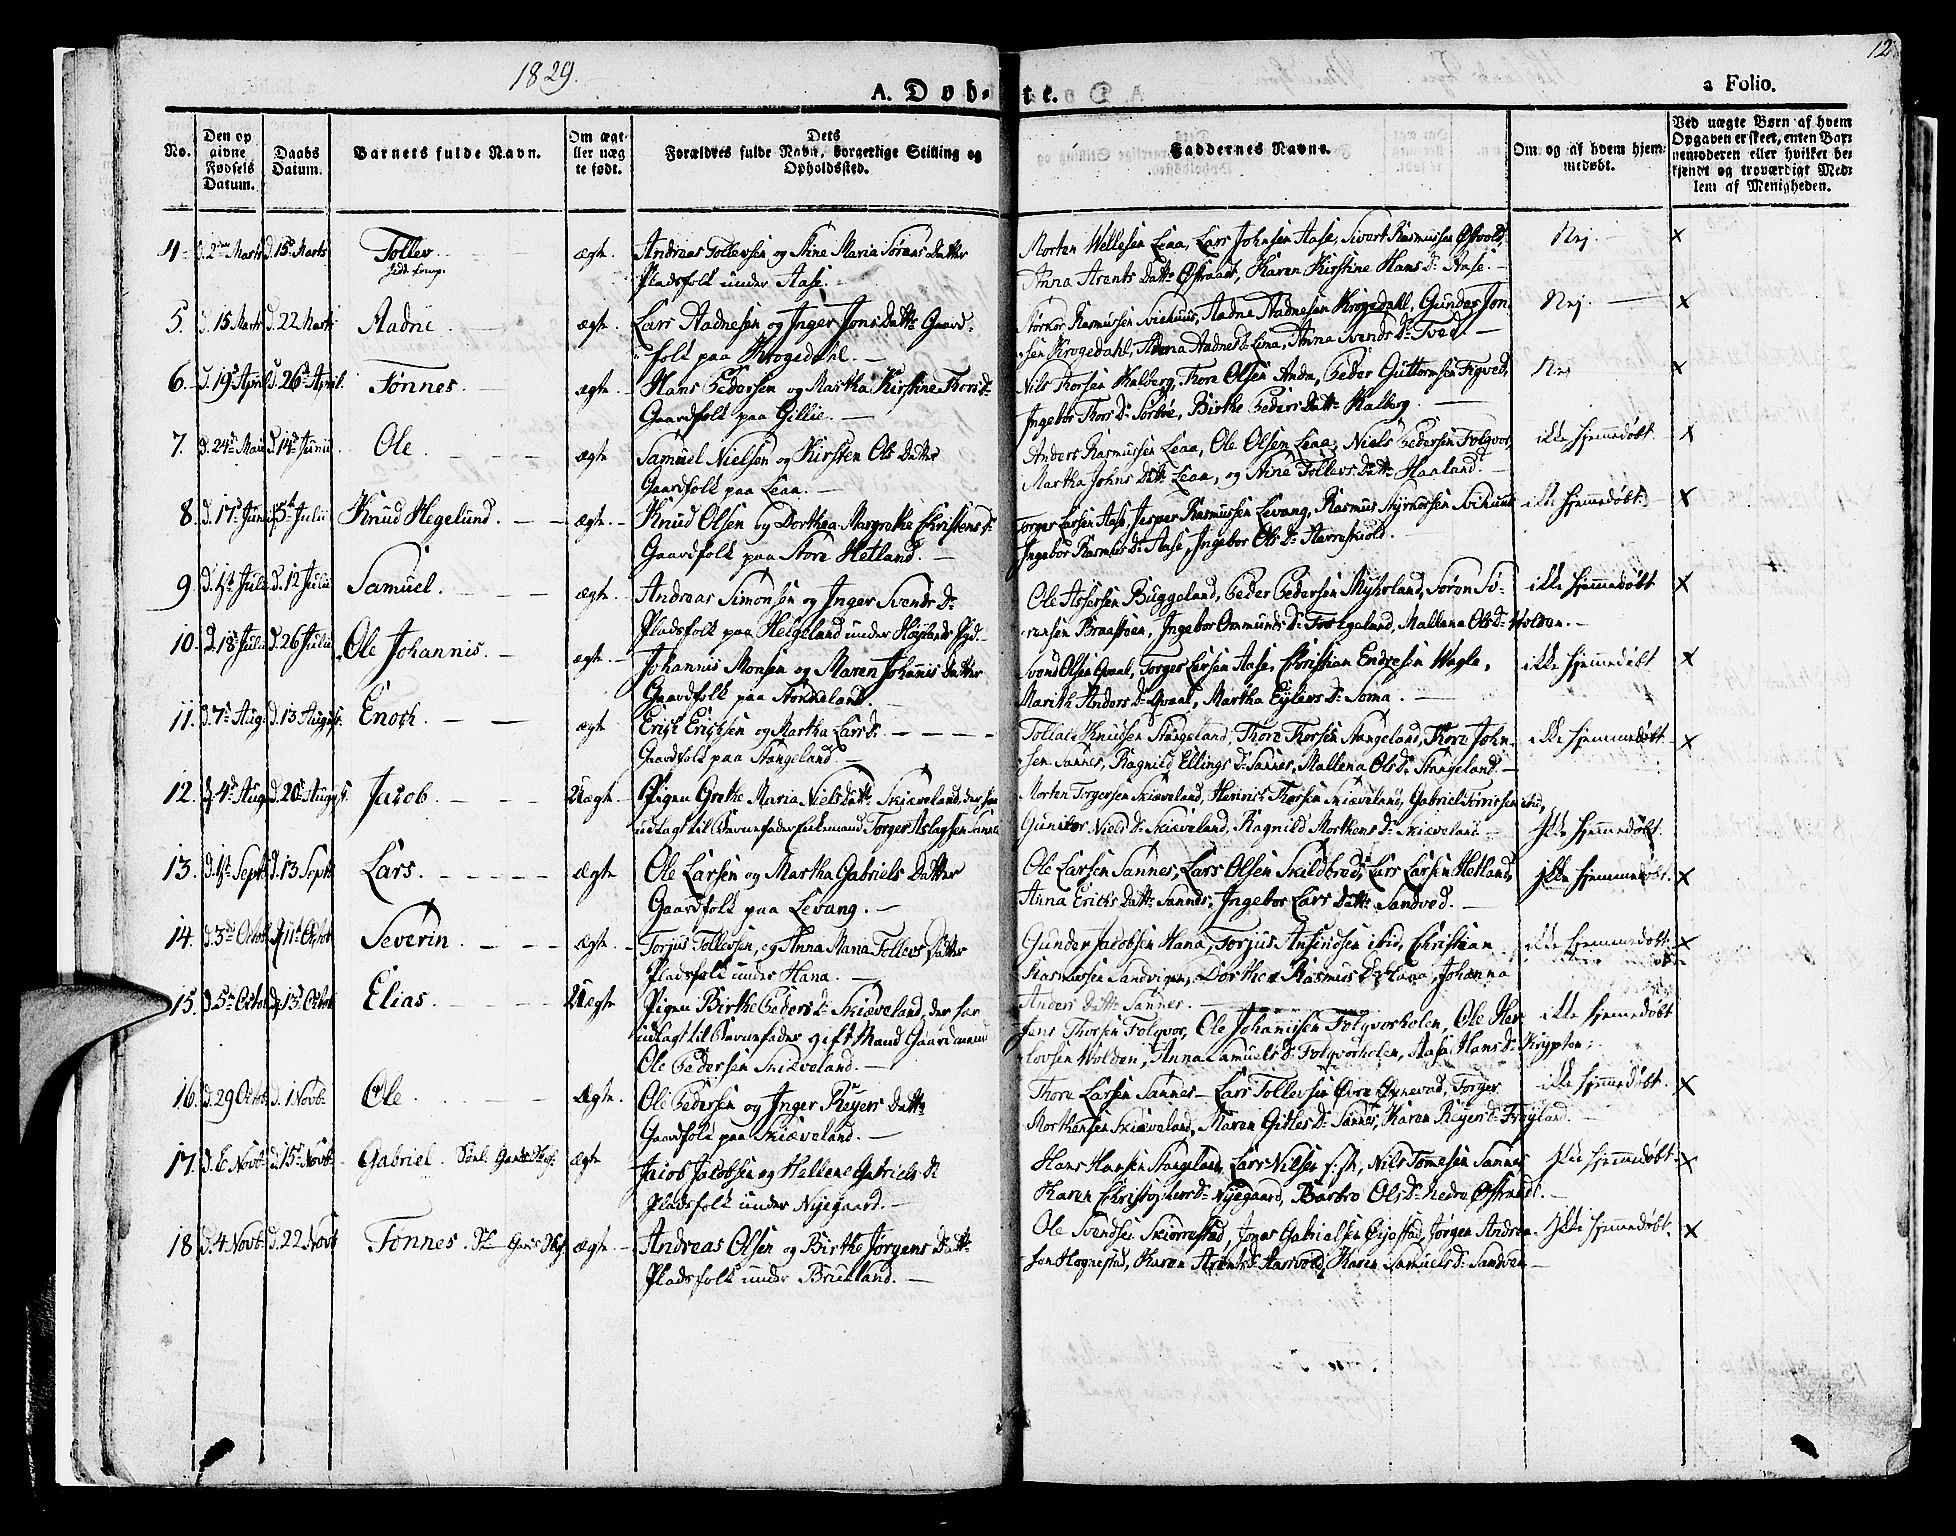 1829.
12
A. Døb-te.
a Folio.
No.
Den op givne Fødsels Datum.
Daabs Datum.
Barnets fulde Navn.
Om ægt- eller uæg te født.
Dets Forældres fulde Navn, borgerlige Stilling og Opholdssted.
Faddernes Navne.
Om og af hvem hjem- medøbt.
Ved uægte Børn af hvem Opgaven er skeet, enten Bar- nemoderen eller hvilket be- kjendt og troværdigt Med- lem af Menigheden.
4. d. 2den Marts d. 15de Marts Tollev ægte. Andreas Tollevsen og Stine Maria Sørens Datter
Pladsfolk under Aase. —
Morten Lea, Lars Johnsen Aase, Sivert Rasmussen Østvold,
Anna Arents Dattr Østraat, Karen Kirstine Hans Dr Aase. —
Nej. — x
5. d. 15 Marts d. 22 Marts Aadne ægte. Lars Aadnesen og Inger Jons Dattr Gaard-
folk paa Krogedahl. —
Rasmussen Svihuus, Aadne Aadnesen Krogedahl, Gunder Jon-
sen Krogedahl, Aadnes Dr Lima, Anna Svends Dr Tved —
Nej — x
6. d. 19de April d. 26de April. Tønnes. ægte. Hans Pedersen og Martha Kirstine Thors Dr
Gaardfolk paa Gillie. —
Nils Thorsen Kalberg, Thore Olsen Anda, Peder Guttormsen Figved,
Ingebor Thors Dr Sørboe, Birthe Peders Dattr Kalberg. —
Nej x
7. d. 24de Maii d. 14de Junii Ole ægte Samuel Nielsen og Kirsten Ols Datter
Gaardfolk paa Leaa. —
Anders Rasmussen Leaa, Ole Olsen Leaa, Niels Pedersen Folqvor,
Martha Johns Dattr Leaa, og Stine Tollevs Dattr Haaland. —
ikke hjemmedøbt. x
8. d. 17de Junii d. 5te Julii Knud Hegelund. — ægte. — Knud Olsen og Dorthea Margrethe Christens Dr
Gaardfolk paa Store Hetland. —
Torger Larsen Aase, Jesper Rasmussen Levang, Rasmus Svihuus
Ingebor Rasmus Dr Aase, Ingebor Ols Dr
ikke hjemmedøbt. x
9. d. 1ste Julii d. 12 Julii Samuel. — ægte. Andreas Simonsen og Inger Svends Dr
Pladsfolk paa Helgeland under Høylands
Ole Assersen Buggeland, Peder Pedersen Myhrland, Søren Sø-
rensen Braasteen, Ingebor Ommunds Dr, Mallena Ols Dr Holden. —
ikke hjemmedøbt x
10. d. 18 Julii d. 26 Julii Ole Johannis. — ægte. — Johannis Monsen og Maren Johannis Datter
Gaardfolk paa Storkeland.
Svend Olsen Qvaal, Torger Larsen Aase, Christian Endresen Vagle,
Marith Anders Dr Qvaal, Martha Eylers Dr Soma. —
ikke hjemmedøbt x
11. d. 7de Aug. d. 13 August. Enoch. — ægte Erich Erichsen og Martha Lars Dr — — —
Gaardfolk paa Stangeland. —
Knudsen Stangeland, Thore Thorsen Stangeland, Thore John-
sen Sannes, Ragnild Ellings Dr Sannes, Mallena Ols Dr Stangeland. —
ikke hjemmedøbt x
12. d. 4de Aug. d. 20de August. Jacob. — Uægte. Pigen Grethe Maria Niels Dattr Skiæveland, der har
udlagt til Barnefader Torger Aslagsen Sannes
Morten Torgersen Skiæveland, Henrich Thorsen Skiæveland, Gabriel Tønnessen ibid,
Gunilor Niels Dr Skiæveland, Ragnild Morthens Dr Skiæveland —
ikke hjemmedøbt.
13. d. 1ste Septr d. 13 Septr Lars. — ægte Ole Larsen og Martha Gabriels Datter
Gaardfolk paa Levang. —
Ole Larsen Sannes, Lars Olsen Skildbred, Lars Larsen Hetland,
Anna Erichs Dattr Sannes, Ingebor Lars Dattr Sandved. —
ikke hjemmedøbt. x
14. d. 3die Octob. d. 11te Octob Severin. — ægte — Torjus Tollevsen, og Anna Maria Tollevs Datter
Pladsfolk under Hana. —
Gunder Jacobsen Hana, Torjus Ansindsen ibid, Christian
Rasmussen Sandvigen, Dorthea Rasmus Dr Hana, Johanna
Anders Dattr Sannes. —
ikke hjemmedøbt. x
15. d. 5te Octob d. 13de Octob Elias. — Uægte Pigen Birthe Peders Dr Skiæveland, der har
udlagt til Barnefader gift Mand Gaardmand
Ole Pedersen Skiæveland. —
Jens Thorsen Folqvor, Ole Johannisen Folqvorholen, Ole Her-
lovsen Holden, Anna Samuels Dr Folqvorholen, Aasa Hans Dr Krypton.
ikke hjemmedøbt
16. d. 29 Octob d. 1 Novbr Ole. — Ægte. Ole Pedersen og Inger Reyers Dattr
Gaardfolk paa Skiæveland. —
Thore Larsen Sannes — Lars Tollevsen Øvre, Torger
Morthensen Skiæveland, Maren Gitles Dr Sannes, Karen Reyers Dr Frøyland. —
ikke hjemmedøbt. x
17. d. 6 Novbr d. 15de Novbr Gabriel. ægte Jacob Jacobsen og Hellene Gabriels Dr
Pladsfolk under Nyegaard. —
Hans Hansen Stangeland, Lars Nilsen, Nils Tomesen Sannes
Karen Christophers Dr Nyegaard, Barbro Ols Dr nedre Østraadt. —
ikke hjemmedøbt. x
18. d. 4 Novbr d. 22 Novbr Tønnes ægte — Andreas Olsen og Birthe Jørgens Dattr
Pladsfolk under Brueland. —
Ole Svendsen Skiørrestad, Jonas Gabrielsen, Jørgen Andrea-
sen Hognestad, Karen Arents Dr Aarsvold, Karen Samuels Dr Sandven —
ikke hjemmedøbt. x